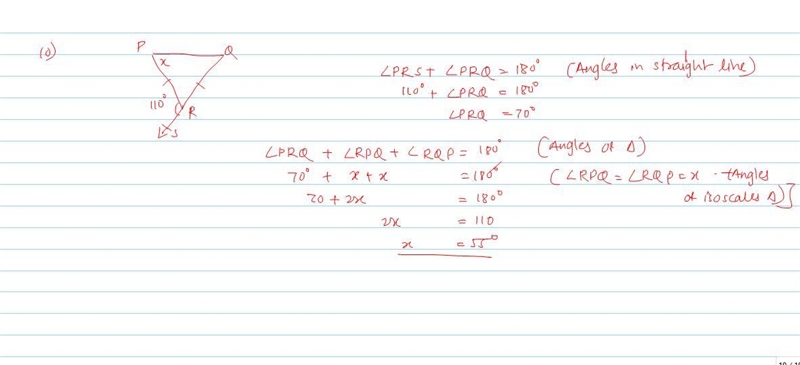 (o)
P
Q
x
110°
R
S
∠PRS + ∠PRQ = 180° (Angles in straight line)
110° + ∠PRQ = 180°
∠PRQ = 70°
∠PRQ + ∠RPQ + ∠RQP = 180° (Angles of Δ)
70° + x + x = 180° (∠RPQ = ∠RQP = x - Angles
70 + 2x = 180° of isoscales Δ)]
2x = 110
x = 55°